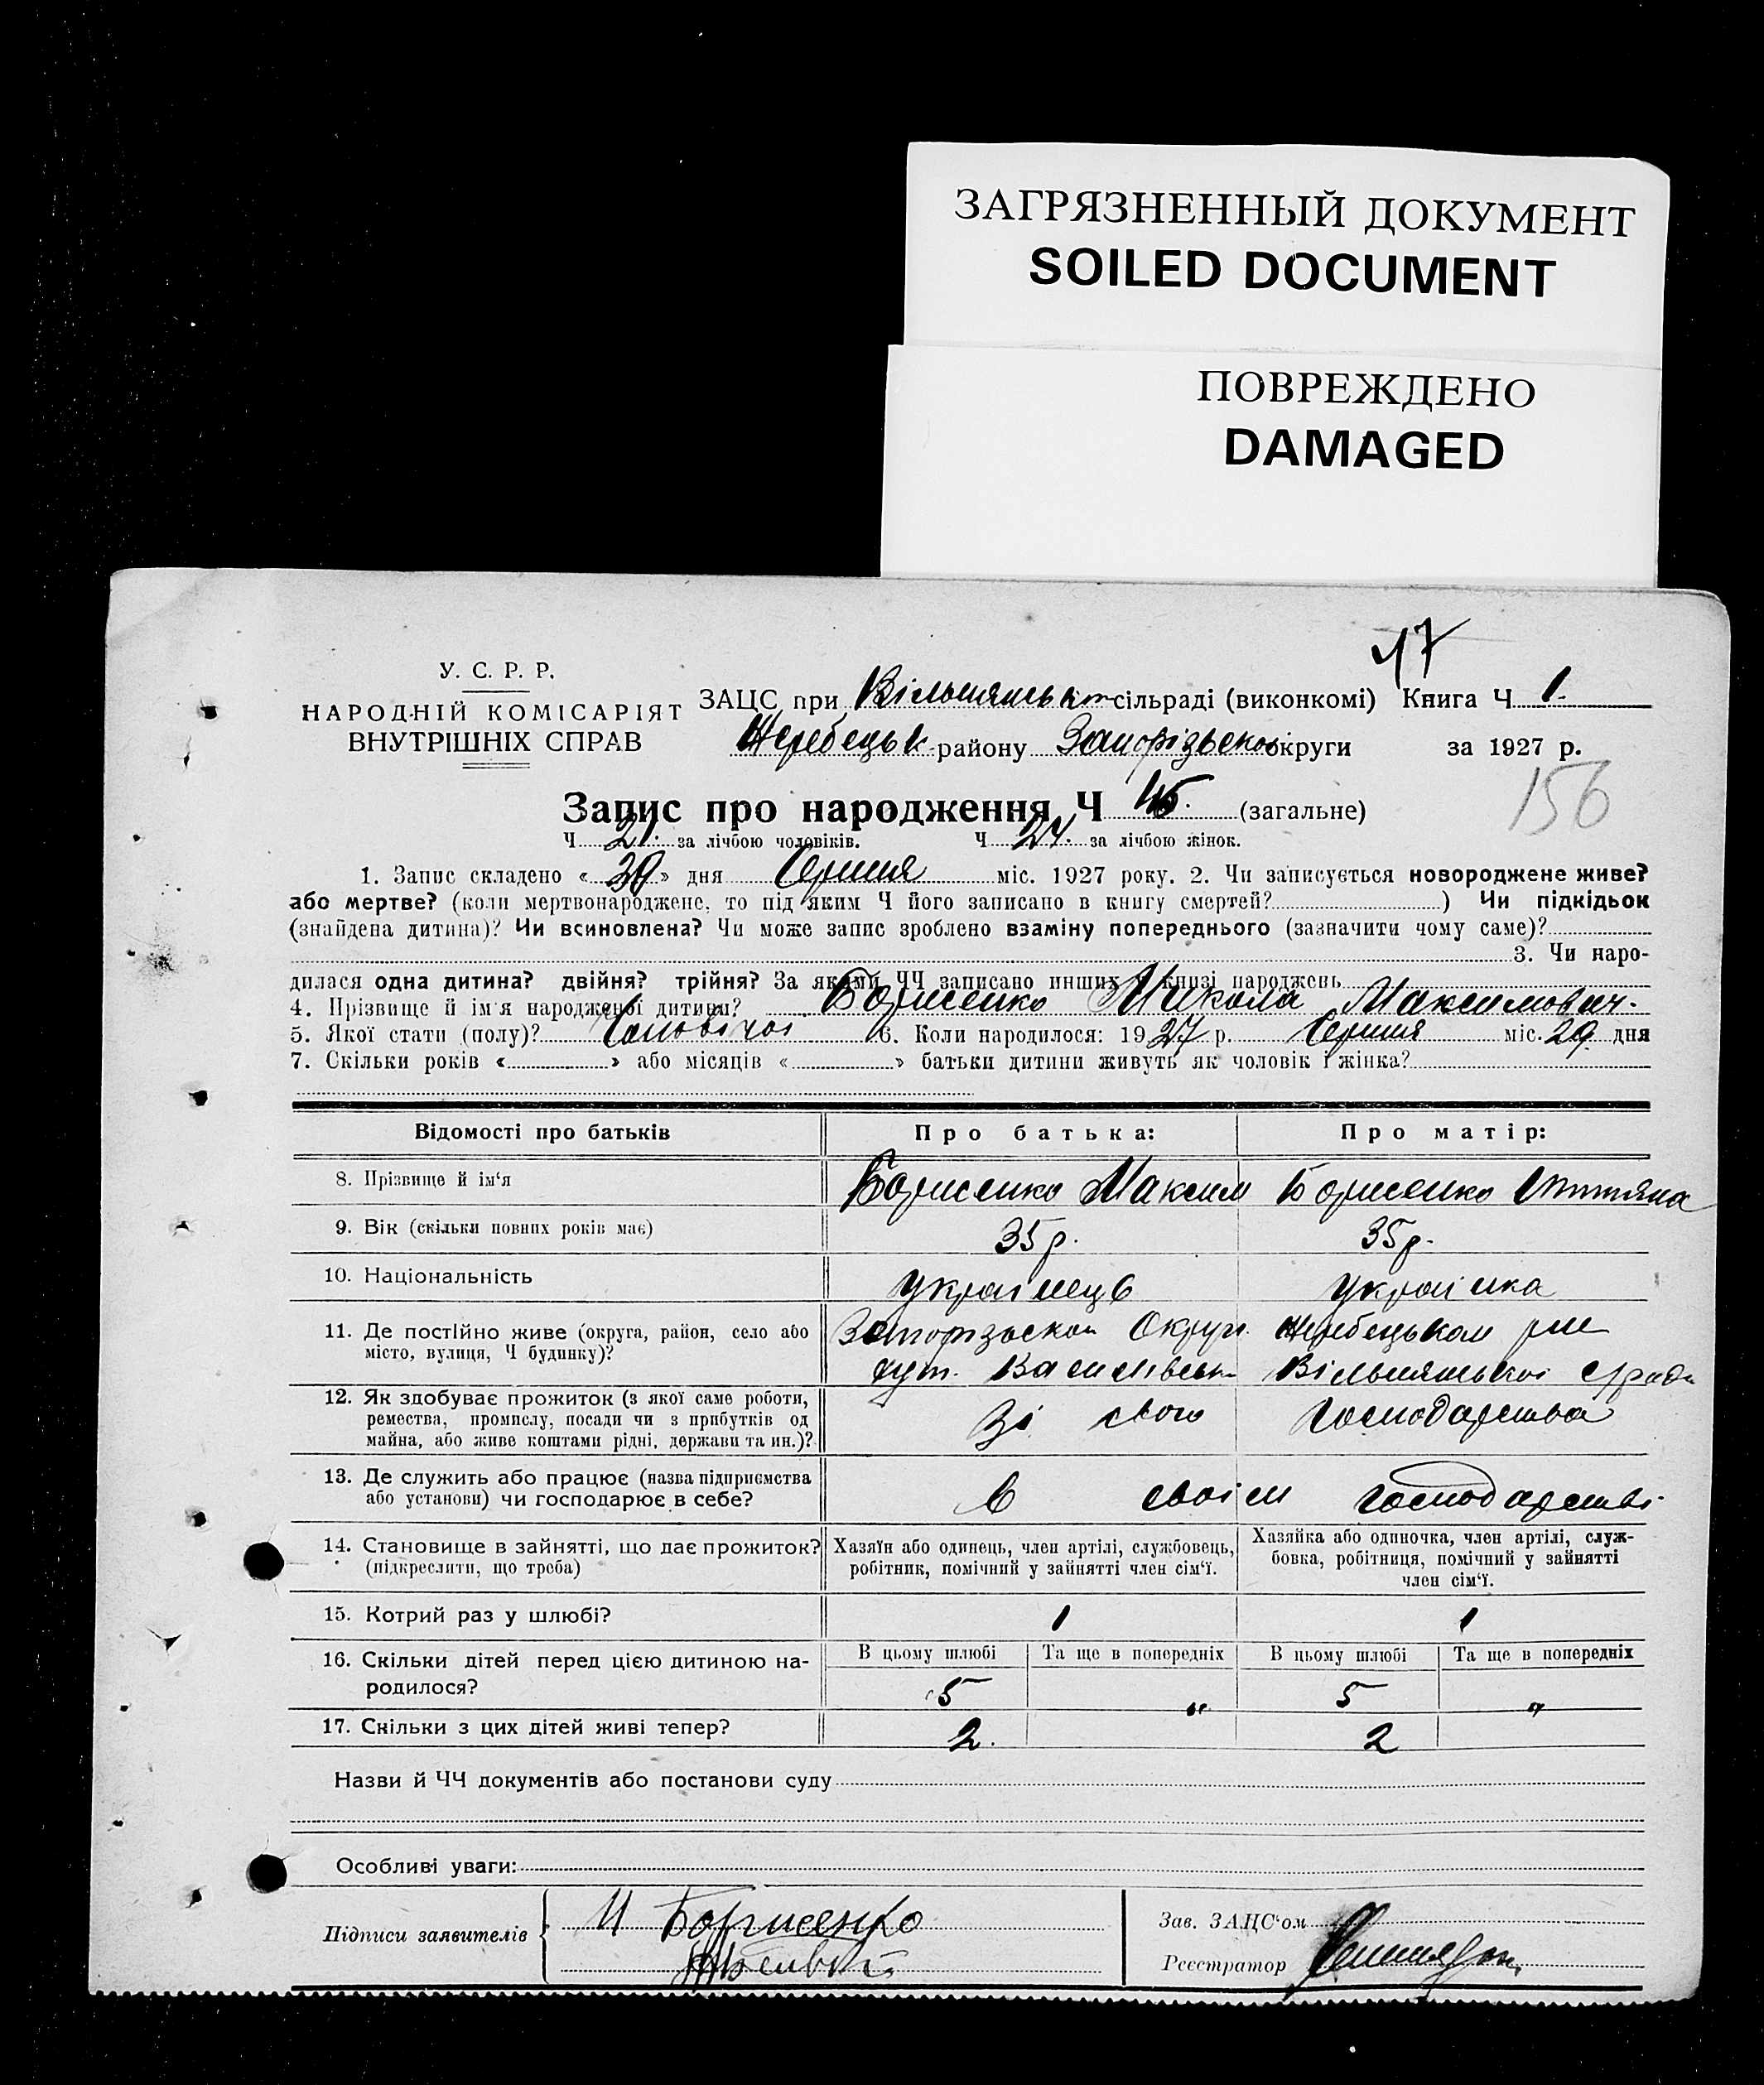 ЗАГРЯЗНЕННЫЙ ДОКУМЕНТ
SOILED DOCUMENT
ПОВРЕЖДЕНО
DAMAGED
47
У. С. Р. Р.
НАРОДНІЙ КОМІСАРІЯТ
ВНУТРІШНІХ СПРАВ
ЗАЦС при Вільшанськ сільраді (виконкомі) Книга Ч 1
Жеребецьк. району Запорізької округи за 1927 р.
156
Запис про народження Ч 45. (загальне)
Ч 21. за лічбою чоловіків. Ч 24. за лічбою жінок.
1. Запис складено « 30 » дня Серпня міс. 1927 року. 2. Чи записується новороджене живе?
або мертве? (коли мертвонароджене, то під яким Ч його записано в книгу смертей? ) Чи підкідьок
(знайдена дитина)? Чи всиновлена? Чи може запис зроблено взаміну попереднього (зазначити чому саме)?
3. Чи наро-
дилася одна дитина? двійня? трійня? За якими ЧЧ записано инших в книзі народжень
4. Прізвище й ім'я народженої дитини? Борисенко Микола Максимович.
5. Якої стати (полу)? Чоловічої 6. Коли народилося: 1927 р. Серпня міс. 29 дня
7. Скільки років « » або місяців « » батьки дитини живуть як чоловік і жінка?
Відомості про батьків Про батька: Про матір:
8. Прізвище й ім'я Борисенко Максим Борисенко
9. Вік (скільки повних років має) 35 р. 35 р.
10. Національність Українець Українка
11. Де постійно живе (округа, район, село або
місто, вулиця, Ч будинку)?
Запорізької Округи Жеребецьком
хут. Василівськ Вільшанської с/ради
12. Як здобуває прожиток (з якої саме роботи,
ремества, промислу, посади чи з прибутків од
майна, або живе коштами рідні, держави та ин.)?
Зі свого господарства
13. Де служить або працює (назва підприємства
або установи) чи господарює в себе?
в своїм господарстві
14. Становище в зайнятті, що дає прожиток?
(підкреслити, що треба)
Хазяїн або одинець, член артілі, службовець,
робітник, помічний у зайнятті член сім'ї.
Хазяйка або одиночка, член артілі, служ-
бовка, робітниця, помічний у зайнятті
член сім'ї.
15. Котрий раз у шлюбі? 1 1
16. Скільки дітей перед цією дитиною на-
родилося?
В цьому шлюбі Та ще в попередніх В цьому шлюбі Та ще в попередніх
5 " 5 "
17. Скільки з цих дітей живі тепер? 2. 2
Назви й ЧЧ документів або постанови суду
Особливі уваги:
Підписи заявителів М Борисенко
Зав. ЗАЦС'ом
Реєстратор